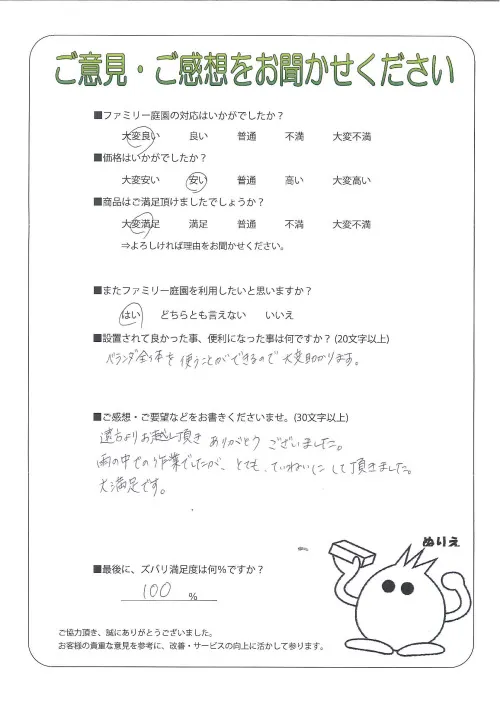 ご意見・ご感想をお聞かせください
■ファミリー庭園の対応はいかがでしたか？
大変良い 良い 普通 不満 大変不満
■価格はいかがでしたか？
大変安い 安い 普通 高い 大変高い
■商品はご満足頂けましたでしょうか？
大変満足 満足 普通 不満 大変不満
⇒よろしければ理由をお聞かせください。
■またファミリー庭園を利用したいと思いますか？
はい どちらとも言えない いいえ
■設置されて良かった事、便利になった事は何ですか？(20文字以上)
ベランダ全体を使うことができるので大変助かります。
■ご感想・ご要望などをお書きくださいませ。(30文字以上)
遠方よりお越し頂きありがとうございました。
雨の中での作業でしたが、とても、ていねいにして頂きました。
大満足です。
ぬりえ
■最後に、ズバリ満足度は何％ですか？
100 ％
ご協力頂き、誠にありがとうございました。
お客様の貴重な意見を参考に、改善・サービスの向上に活かして参ります。